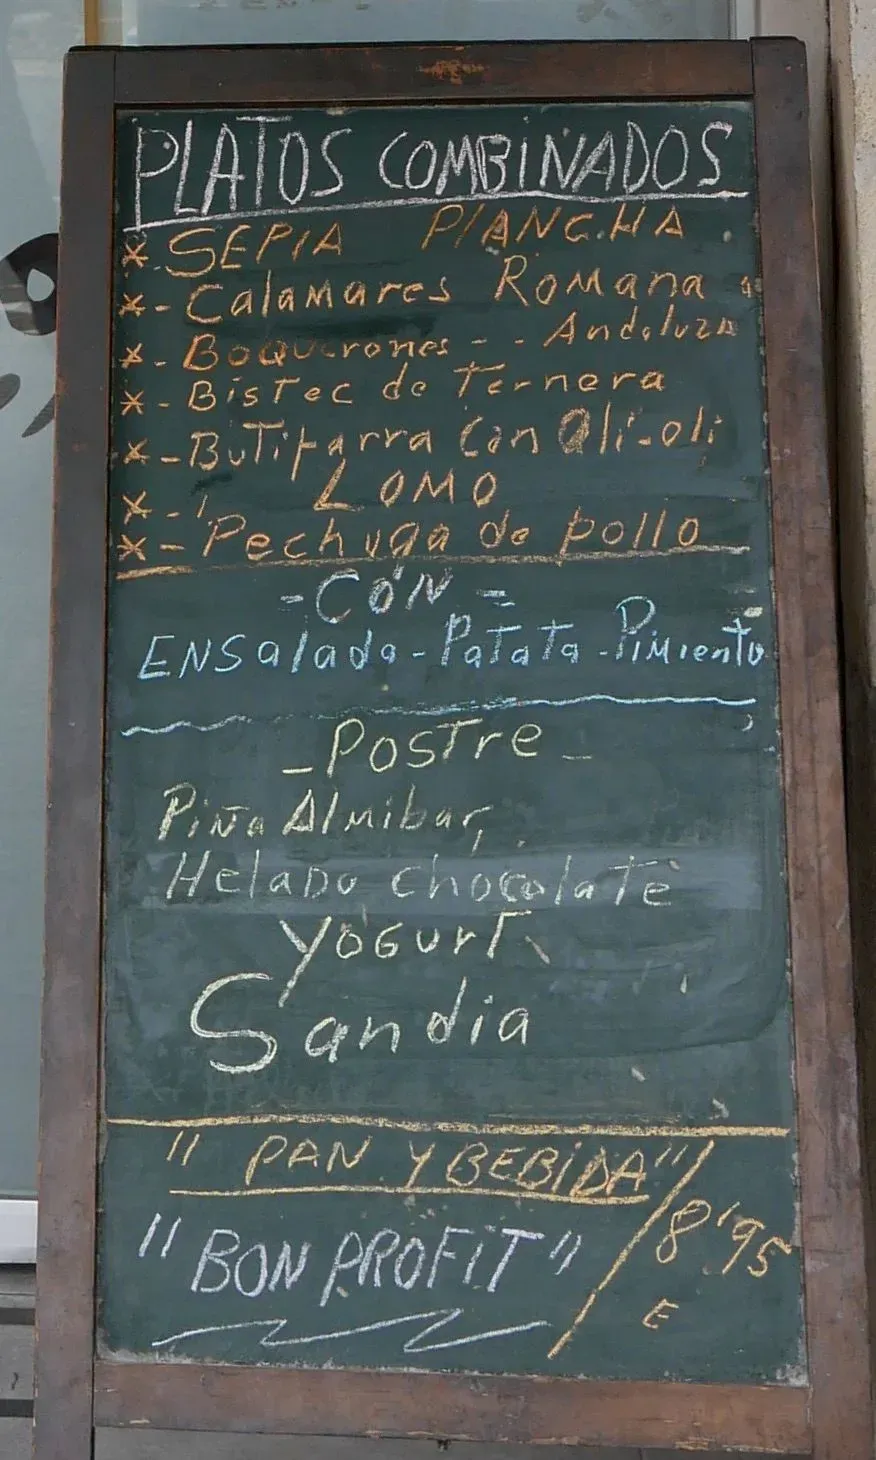 PLATOS COMBINADOS
* SEPIA PLANCHA
*- Calamares Romana
*- Boquerones - - Andaluza
*- Bistec de Ternera
*- Butifarra Con Ali-oli
*- LOMO
*- Pechuga de pollo
- CON -
ENSalada - Patata - Pimiento
- Postre -
Piña Almibar,
Helado chocolate
Yogurt
Sandia
" PAN Y BEBIDA"
8'95
"BON PROFIT"
E